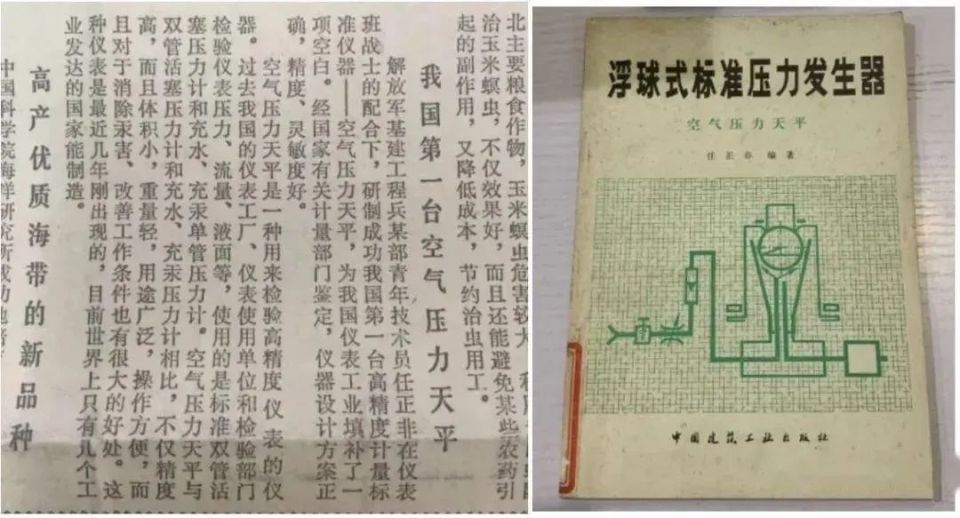 北主要粮食作物，玉米螟虫危害较大，
治玉米螟虫，不仅效果好，而且还能避免某些农药引
起的副作用，又降低成本，节约治虫用工。
我国第一台空气压力天平
解放军基建工程兵某部青年技术员任正非在仪表
班战士的配合下，研制成功我国第一台高精度计量标
准仪器——空气压力天平，为我国仪表工业填补了一
项空白。经国家有关计量部门鉴定，仪器设计方案正
确，精度、灵敏度好。
空气压力天平是一种用来检验高精度仪表的仪
器。过去我国的仪表工厂、仪表使用单位和检验部门
检验仪表压力、流量、液面等，使用的是标准双管活
塞压力计和充水、充汞单管压力计。空气压力天平与
双管活塞压力计和充水、充汞压力计相比，不仅精度
高，而且体积小，重量轻，用途广泛，操作方便，而
且对于消除汞害、改善工作条件也有很大的好处。这
种仪表是最近几年刚出现的，目前世界上只有几个工
业发达的国家能制造。
高产优质海带的新品种
中国科学院海洋研究所成功地
浮球式标准压力发生器
空气压力天平
任正非 编著
中国建筑工业出版社